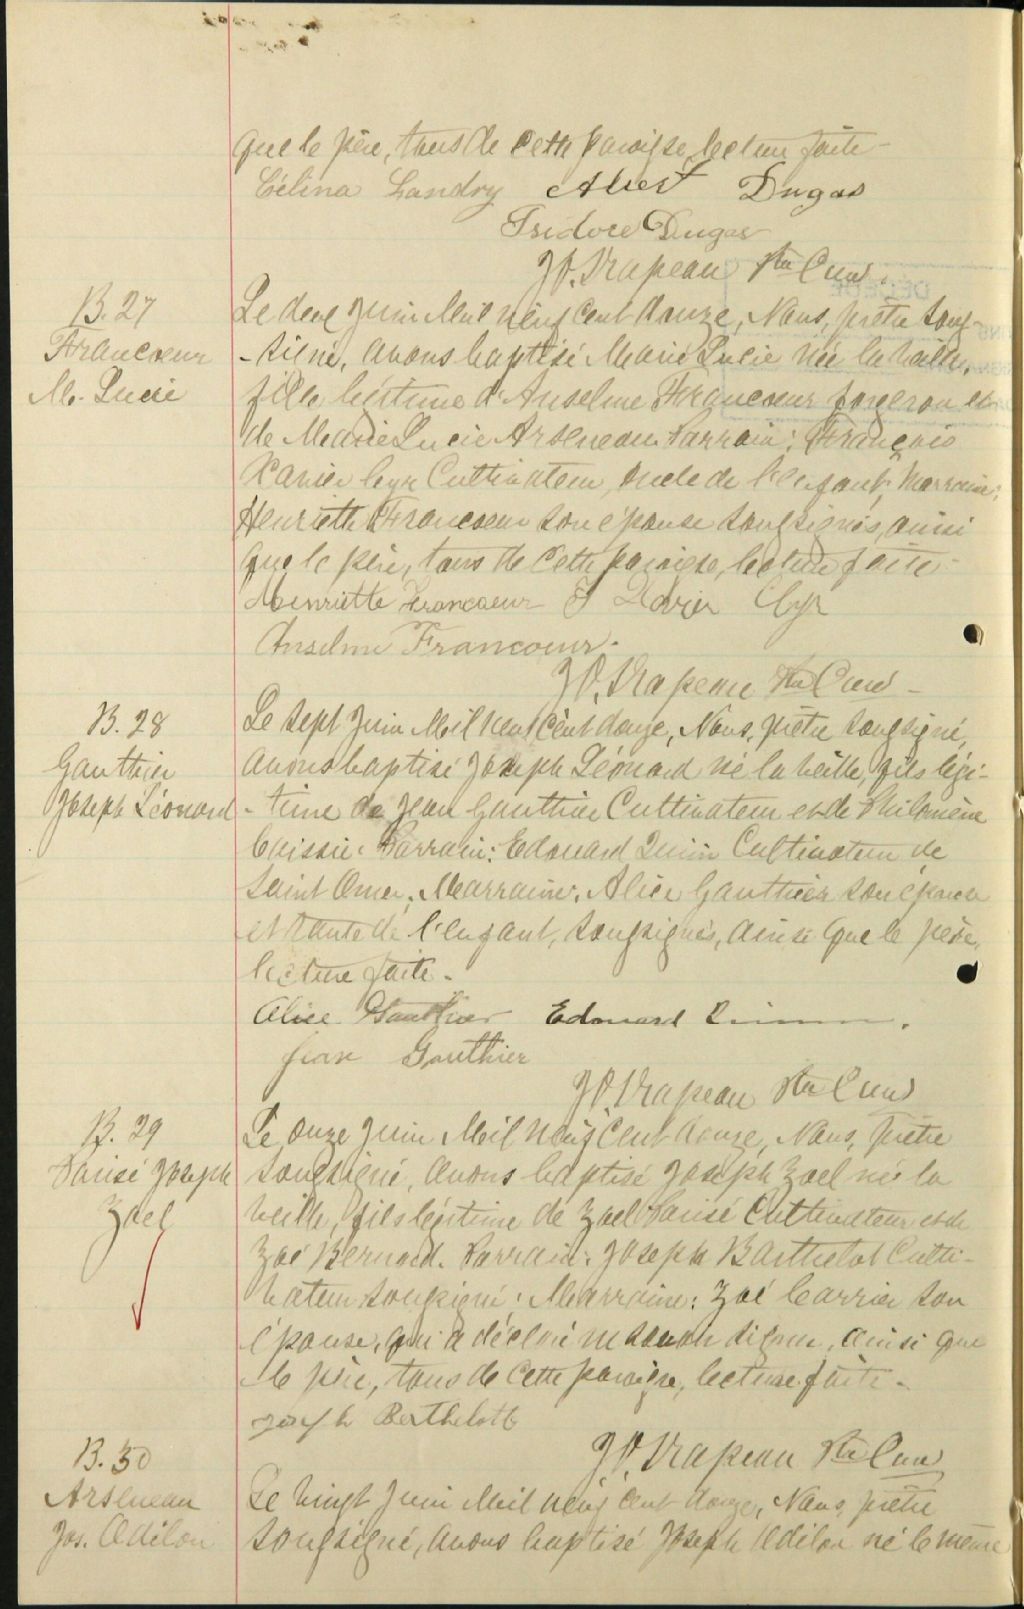 que le père, tous de cette paroisse, lecture faite -
Célina Landry Albert Dugas
Isidore Dugas
J.D. Drapeau Ptre Curé.
B. 27
Francoeur
M. Lucie
Le deux Juin Mil neuf Cent douze, Nous, prêtre sous-
-signé, avons baptisé Marie Lucie née la veille,
fille légitime d'Anselme Francoeur forgeron et
de Marie Lucie Arseneau. Parrain: François
Xavier Cyr Cultivateur, oncle de l'enfant; Marraine:
Henriette Francoeur son épouse soussignés, ainsi
que le père, tous de cette paroisse, lecture faite -
Henriette Francoeur F Xavier Cyr
Anselme Francoeur.
J.D. Drapeau Ptre Curé -
B. 28
Gauthier
Joseph Léonard
Le sept Juin Mil neuf Cent douze, Nous, prêtre soussigné,
avons baptisé Joseph Léonard né la veille, fils légi-
-time de Jean Gauthier Cultivateur et de Philomène
Parrain: Edouard Quinn Cultivateur de
Saint Omer; Marraine: Alice Gauthier son épouse
et tante de l'enfant, soussignés, ainsi que le père,
lecture faite -
Alice Gauthier Edouard
Jean Gauthier
J.D. Drapeau Ptre Curé
B. 29
Joseph
Zoel
Le onze Juin Mil neuf Cent douze, Nous, prêtre
soussigné, avons baptisé Joseph Zoel né la
veille, fils légitime de Zoel Cultivateur et de
Zoé Bernard. Parrain: Joseph Barthelot Culti-
vateur soussigné; Marraine: Zoé Carrier son
épouse, qui a déclaré ne savoir signer, ainsi que
le père, tous de cette paroisse, lecture faite -
Joseph Berthelott
J.D. Drapeau Ptre Curé
B. 30
Arseneau
Jos. Odilon
Le vingt Juin Mil neuf Cent douze, Nous, prêtre
soussigné, avons baptisé Joseph Odilon né le même